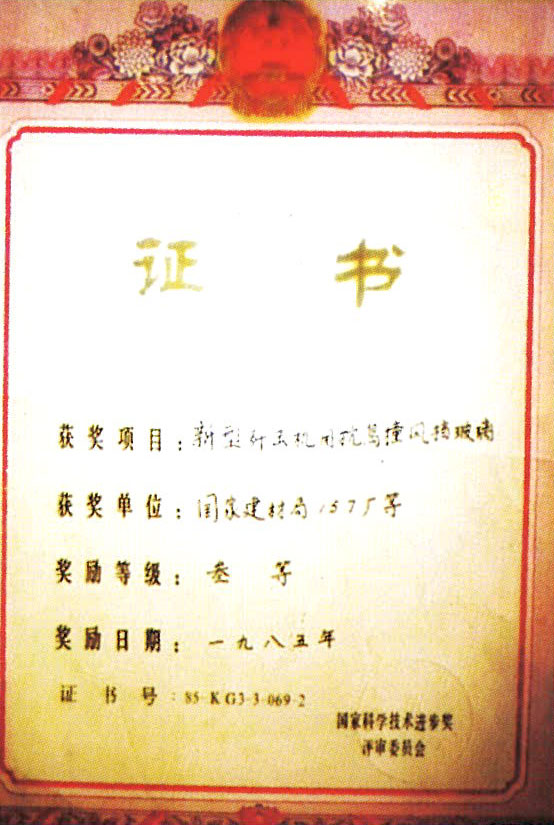 证书
获奖项目：新型歼击机用抗鸟撞风挡玻璃
获奖单位：国家建材局157厂等
奖励等级：叁等
奖励日期：一九八五年
证书号：85-KG3-3-069-2
国家科学技术进步奖
评审委员会